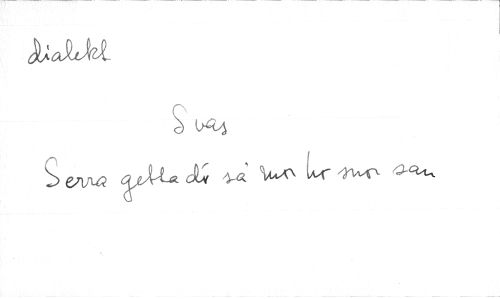 dialekt
Svas
Serra getta di så mor ho mor san